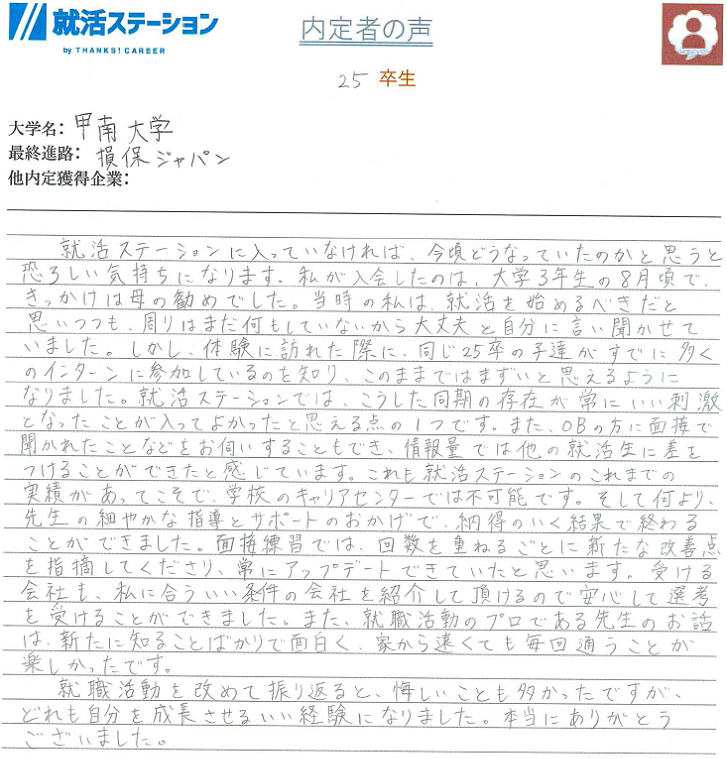 就活ステーション
by THANKS! CAREER
内定者の声
25 卒生
大学名: 甲南大学
最終進路: 損保ジャパン
他内定獲得企業:
就活ステーションに入っていなければ、今頃どうなっていたのかと思うと
恐ろしい気持ちになります。私が入会したのは、大学3年生の8月頃で、
きっかけは母の勧めでした。当時の私は、就活を始めるべきだと
思いつつも、周りはまだ何もしていないから大丈夫と自分に言い聞かせて
いました。しかし、体験に訪れた際に、同じ25卒の子達がすでに多く
のインターンに参加しているのを知り、このままではまずいと思えるように
なりました。就活ステーションでは、こうした同期の存在が常にいい刺激
となったことが入ってよかったと思える点の1つです。また、OBの方に面接で
聞かれたことなどをお伺いすることもでき、情報量では他の就活生に差を
つけることができたと感じています。これも就活ステーションのこれまでの
実績があってこそで、学校のキャリアセンターでは不可能です。そして何より、
先生の細やかな指導とサポートのおかげで、納得のいく結果で終わる
ことができました。面接練習では、回数を重ねるごとに新たな改善点
を指摘してくださり、常にアップデートできていたと思います。受ける
会社も、私に合ういい条件の会社を紹介して頂けるので安心して選考
を受けることができました。また、就職活動のプロである先生のお話
は、新たに知ることばかりで面白く、家から遠くても毎回通うことが
楽しかったです。
就職活動を改めて振り返ると、悔しいことも多かったですが、
どれも自分を成長させるいい経験になりました。本当にありがとう
ございました。